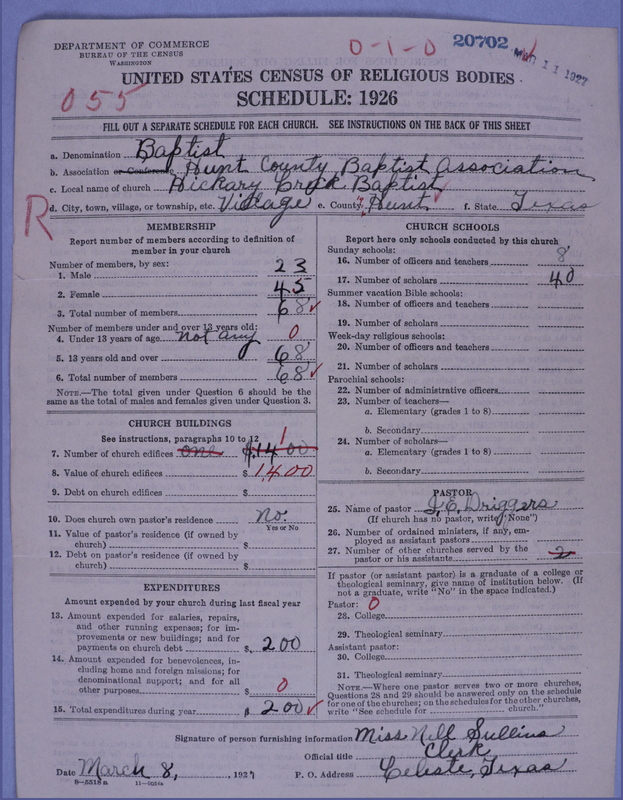 DEPARTMENT OF COMMERCE
BUREAU OF THE CENSUS
WASHINGTON
0-1-0
20702
MAR 11 1927
055
UNITED STATES CENSUS OF RELIGIOUS BODIES
SCHEDULE: 1926
FILL OUT A SEPARATE SCHEDULE FOR EACH CHURCH. SEE INSTRUCTIONS ON THE BACK OF THIS SHEET
a. Denomination Baptist
b. Association or Conference Hunt County Baptist Association
c. Local name of church Hickary Creek Baptist
R d. City, town, village, or township, etc. Village e. County Hunt f. State Texas
MEMBERSHIP
Report number of members according to definition of
member in your church
Number of members, by sex:
1. Male 23
2. Female 45
3. Total number of members 68
Number of members under and over 13 years old:
4. Under 13 years of age not any 0
5. 13 years old and over 68
6. Total number of members 68
NOTE.—The total given under Question 6 should be
same as the total of males and females given under Question 3.
CHURCH BUILDINGS
See instructions, paragraphs 10 to 12
7. Number of church edifices one $1400 1
8. Value of church edifices $ 1400
9. Debt on church edifices $
10. Does church own pastor's residence No.
Yes or No
11. Value of pastor's residence (if owned by
church) $
12. Debt on pastor's residence (if owned by
church) $
EXPENDITURES
Amount expended by your church during last fiscal year
13. Amount expended for salaries, repairs,
and other running expenses; for im-
provements or new buildings; and for
payments on church debt $ 200
14. Amount expended for benevolences, in-
cluding home and foreign missions; for
denominational support; and for all
other purposes $ 0
15. Total expenditures during year $ 200
CHURCH SCHOOLS
Report here only schools conducted by this church
Sunday schools:
16. Number of officers and teachers 8
17. Number of scholars 40
Summer vacation Bible schools:
18. Number of officers and teachers
19. Number of scholars
Week-day religious schools:
20. Number of officers and teachers
21. Number of scholars
Parochial schools:
22. Number of administrative officers
23. Number of teachers—
a. Elementary (grades 1 to 8)
b. Secondary
24. Number of scholars—
a. Elementary (grades 1 to 8)
b. Secondary
PASTOR
25. Name of pastor J. E. Driggers
(If church has no pastor, write "None")
26. Number of ordained ministers, if any, em-
ployed as assistant pastors
27. Number of other churches served by the
pastor or his assistants 2
If pastor (or assistant pastor) is a graduate of a college or
theological seminary, give name of institution below. (If
not a graduate, write "No" in the space indicated.)
Pastor: 0
28. College
29. Theological seminary
Assistant pastor:
30. College
31. Theological seminary
NOTE.—Where one pastor serves two or more churches,
Questions 28 and 29 should be answered only on the schedule
for one of the churches; on the schedules for the other churches,
write "See schedule for church."
Signature of person furnishing information Miss Nell Sullins
Official title Clerk
Date March 8, 1927 P. O. Address Celeste, Texas
8—5518a